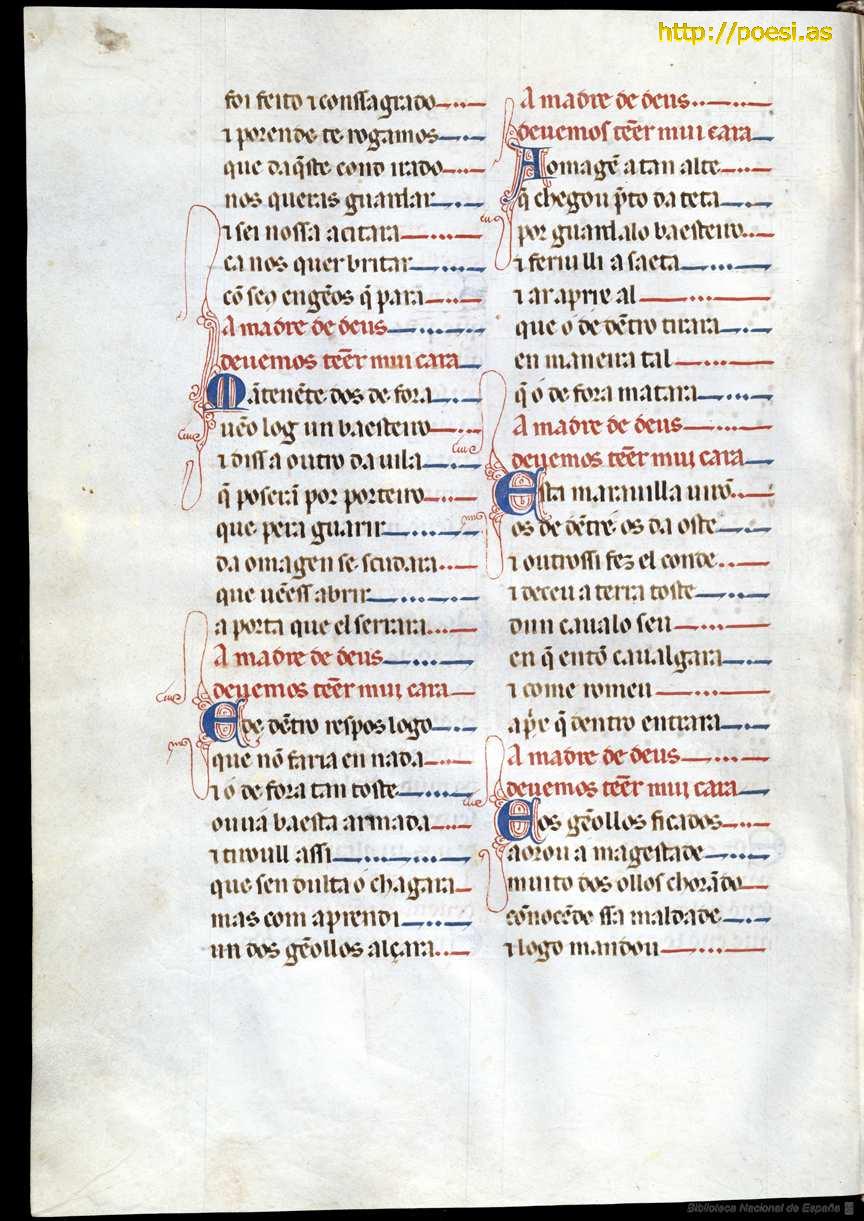 http://poesi.as
foi feito ⁊ conssagrado
⁊ porende te rogamos
que daq̃ste cond irado
nos queras guardar
⁊ sei nossa acitara
ca nos quer britar
cõ seq̃ engẽos q̃ para
A madre de deus
deuemos tẽer mui cara
Mãtenẽte dos de fora
uẽo log un baesteiro
⁊ diss a outro da uila
q̃ poserã por porteiro
que pera guarir
da omagen se scudara
que uẽess abrir
a porta que el serrara
A madre de deus
deuemos tẽer mui cara
E de dẽtro respos logo
que nõ faria en nada
⁊ o de fora tan toste
ouuá baesta armada
⁊ tiroull assi
que sen dulta o chagara
mas com aprendi
un dos gẽollos alçara
A madre de deus
deuemos tẽer mui cara
A omagẽ a tan alte
q̃ chegou p̃to da teta
por guardalo baesteiro
⁊ feriulli a saeta
⁊ ar aprie al
que o de dẽtro tirara
en maneira tal
q̃ ó de fora matara
A madre de deus
deuemos tẽer mui cara
Esta marauilla uirõ
os de dẽtrẽ os da oste
⁊ outrossi fez el conde
⁊ deceu a terra toste
dun caualo seu
en q̃ entõ caualgara
⁊ come romeu
a pẽ q̃ dentro entrara
A madre de deus
deuemos tẽer mui cara
E os gẽollos ficados
aorou a magestade
muito dos ollos chorãdo
cõnocẽdo ssa maldade
⁊ logo mandou
Biblioteca Nacional de España